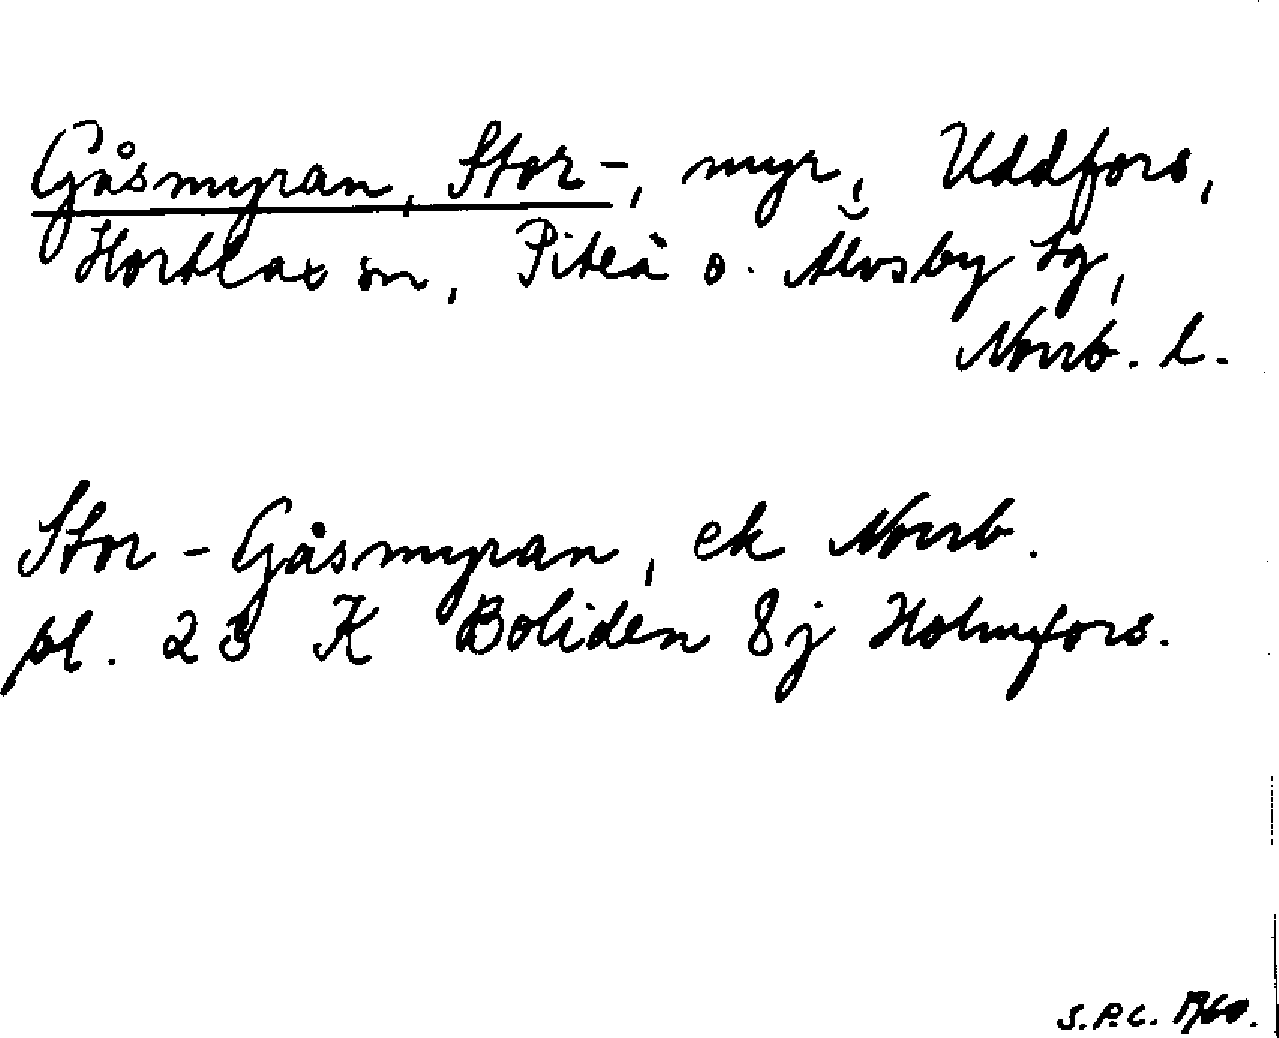 Gåsmyran, Stor-, myr, Uddfors,
Hortlax sn, Piteå o. Älvsby tg,
Norrb. l.
Stor-Gåsmyran, ek Norrb.
pl. 23 K Boliden 8j Holmfors.
S.P.C. 1960.